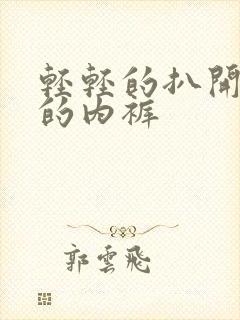 輕輕的扒開
的內褲
郭雲飛